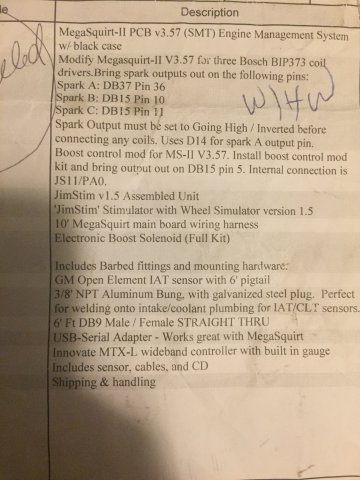 le
Description
MegaSquirt-II PCB v3.57 (SMT) Engine Management System
w/ black case
Modify Megasquirt-II V3.57 for three Bosch BIP373 coil
drivers.Bring spark outputs out on the following pins:
Spark A: DB37 Pin 36
Spark B: DB15 Pin 10
Spark C: DB15 Pin 11
Spark Output must be set to Going High / Inverted before
connecting any coils. Uses D14 for spark A output pin.
Boost control mod for MS-II V3.57. Install boost control mod
kit and bring output out on DB15 pin 5. Internal connection is
JS11/PA0.
JimStim v1.5 Assembled Unit
'JimStim' Stimulator with Wheel Simulator version 1.5
10' MegaSquirt main board wiring harness
Electronic Boost Solenoid (Full Kit)
Includes Barbed fittings and mounting hardware.
GM Open Element IAT sensor with 6' pigtail
3/8' NPT Aluminum Bung, with galvanized steel plug. Perfect
for welding onto intake/coolant plumbing for IAT/CLT sensors.
6' Ft DB9 Male / Female STRAIGHT THRU
USB-Serial Adapter - Works great with MegaSquirt
Innovate MTX-L wideband controller with built in gauge
Includes sensor, cables, and CD
Shipping & handling